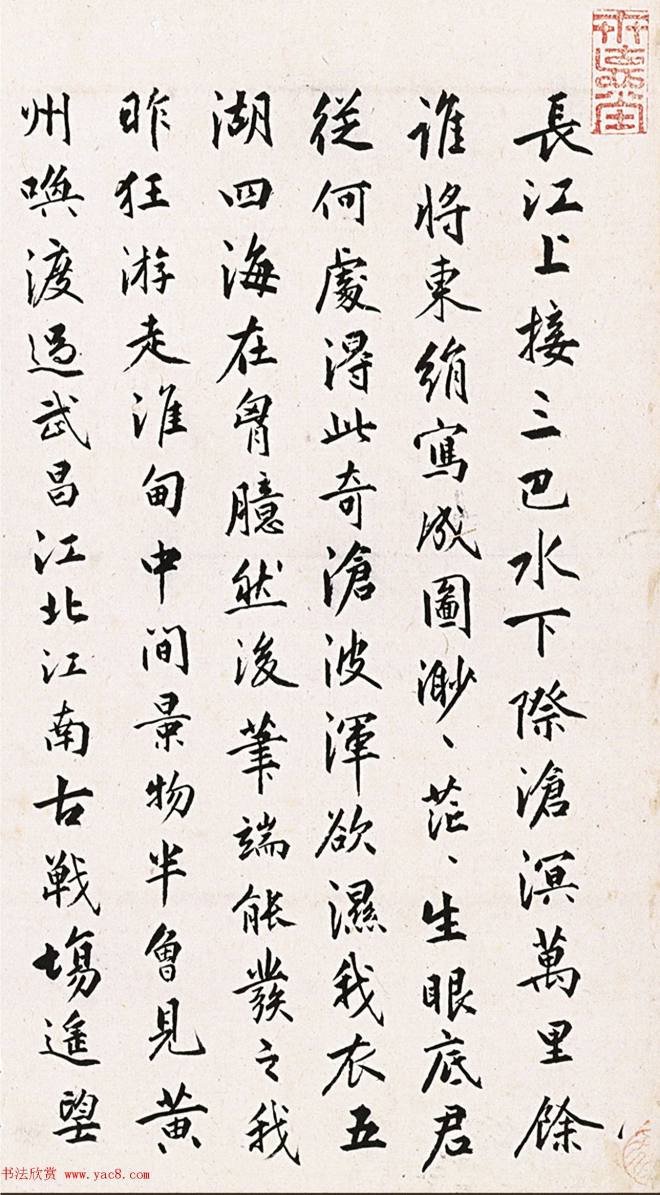 長江上接三巴水下際滄溟萬里餘
誰將東絹寫成圖渺、茫、生眼底君
從何處得此奇滄波渾欲濕我衣五
湖四海在胷臆然後筆端能發之我
昨狂游走淮甸中間景物半曾見黃
州喚渡過武昌江北江南古戰場遙望
书法欣赏 www.yac8.com